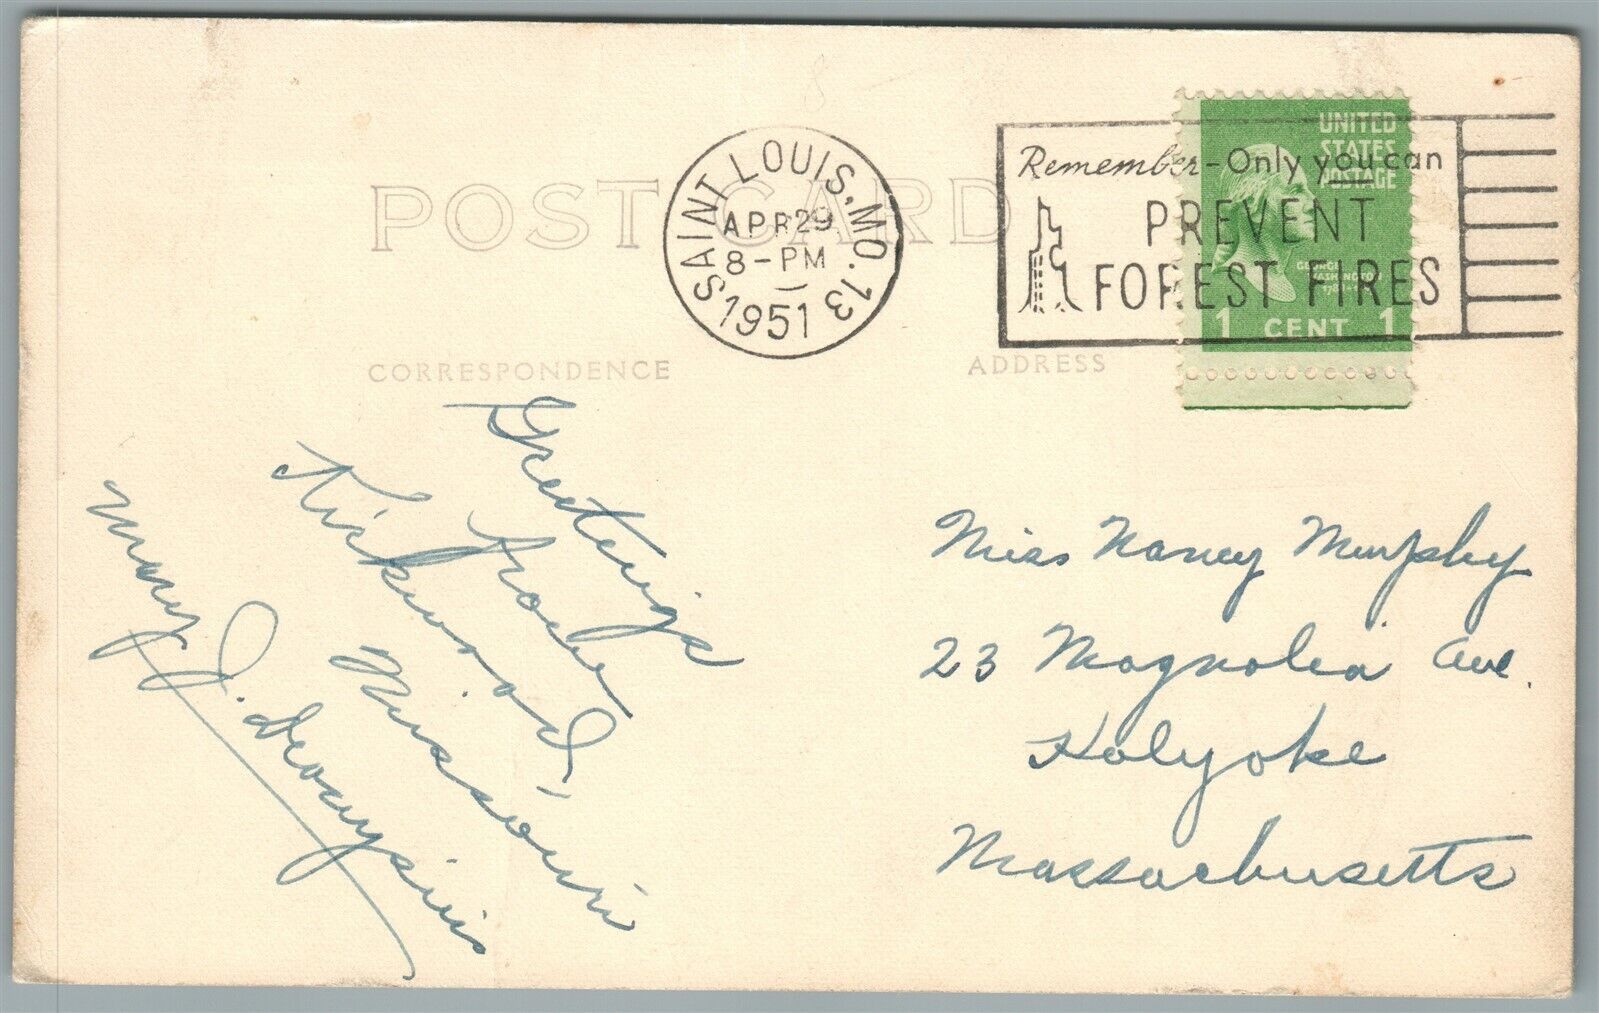 POST CARD
SAINT LOUIS, MO. 13
APR 29
8-PM
1951
Remember-Only you can
PREVENT
FOREST FIRES
UNITED
STATES
POSTAGE
GEORGE
WASHINGTON
1 CENT 1
CORRESPONDENCE
ADDRESS
Greetings
from
Kirkwood,
Missouri
Mary J. Dionysius
Miss Nancy Murphy
23 Magnolia Ave.
Holyoke
Massachusetts